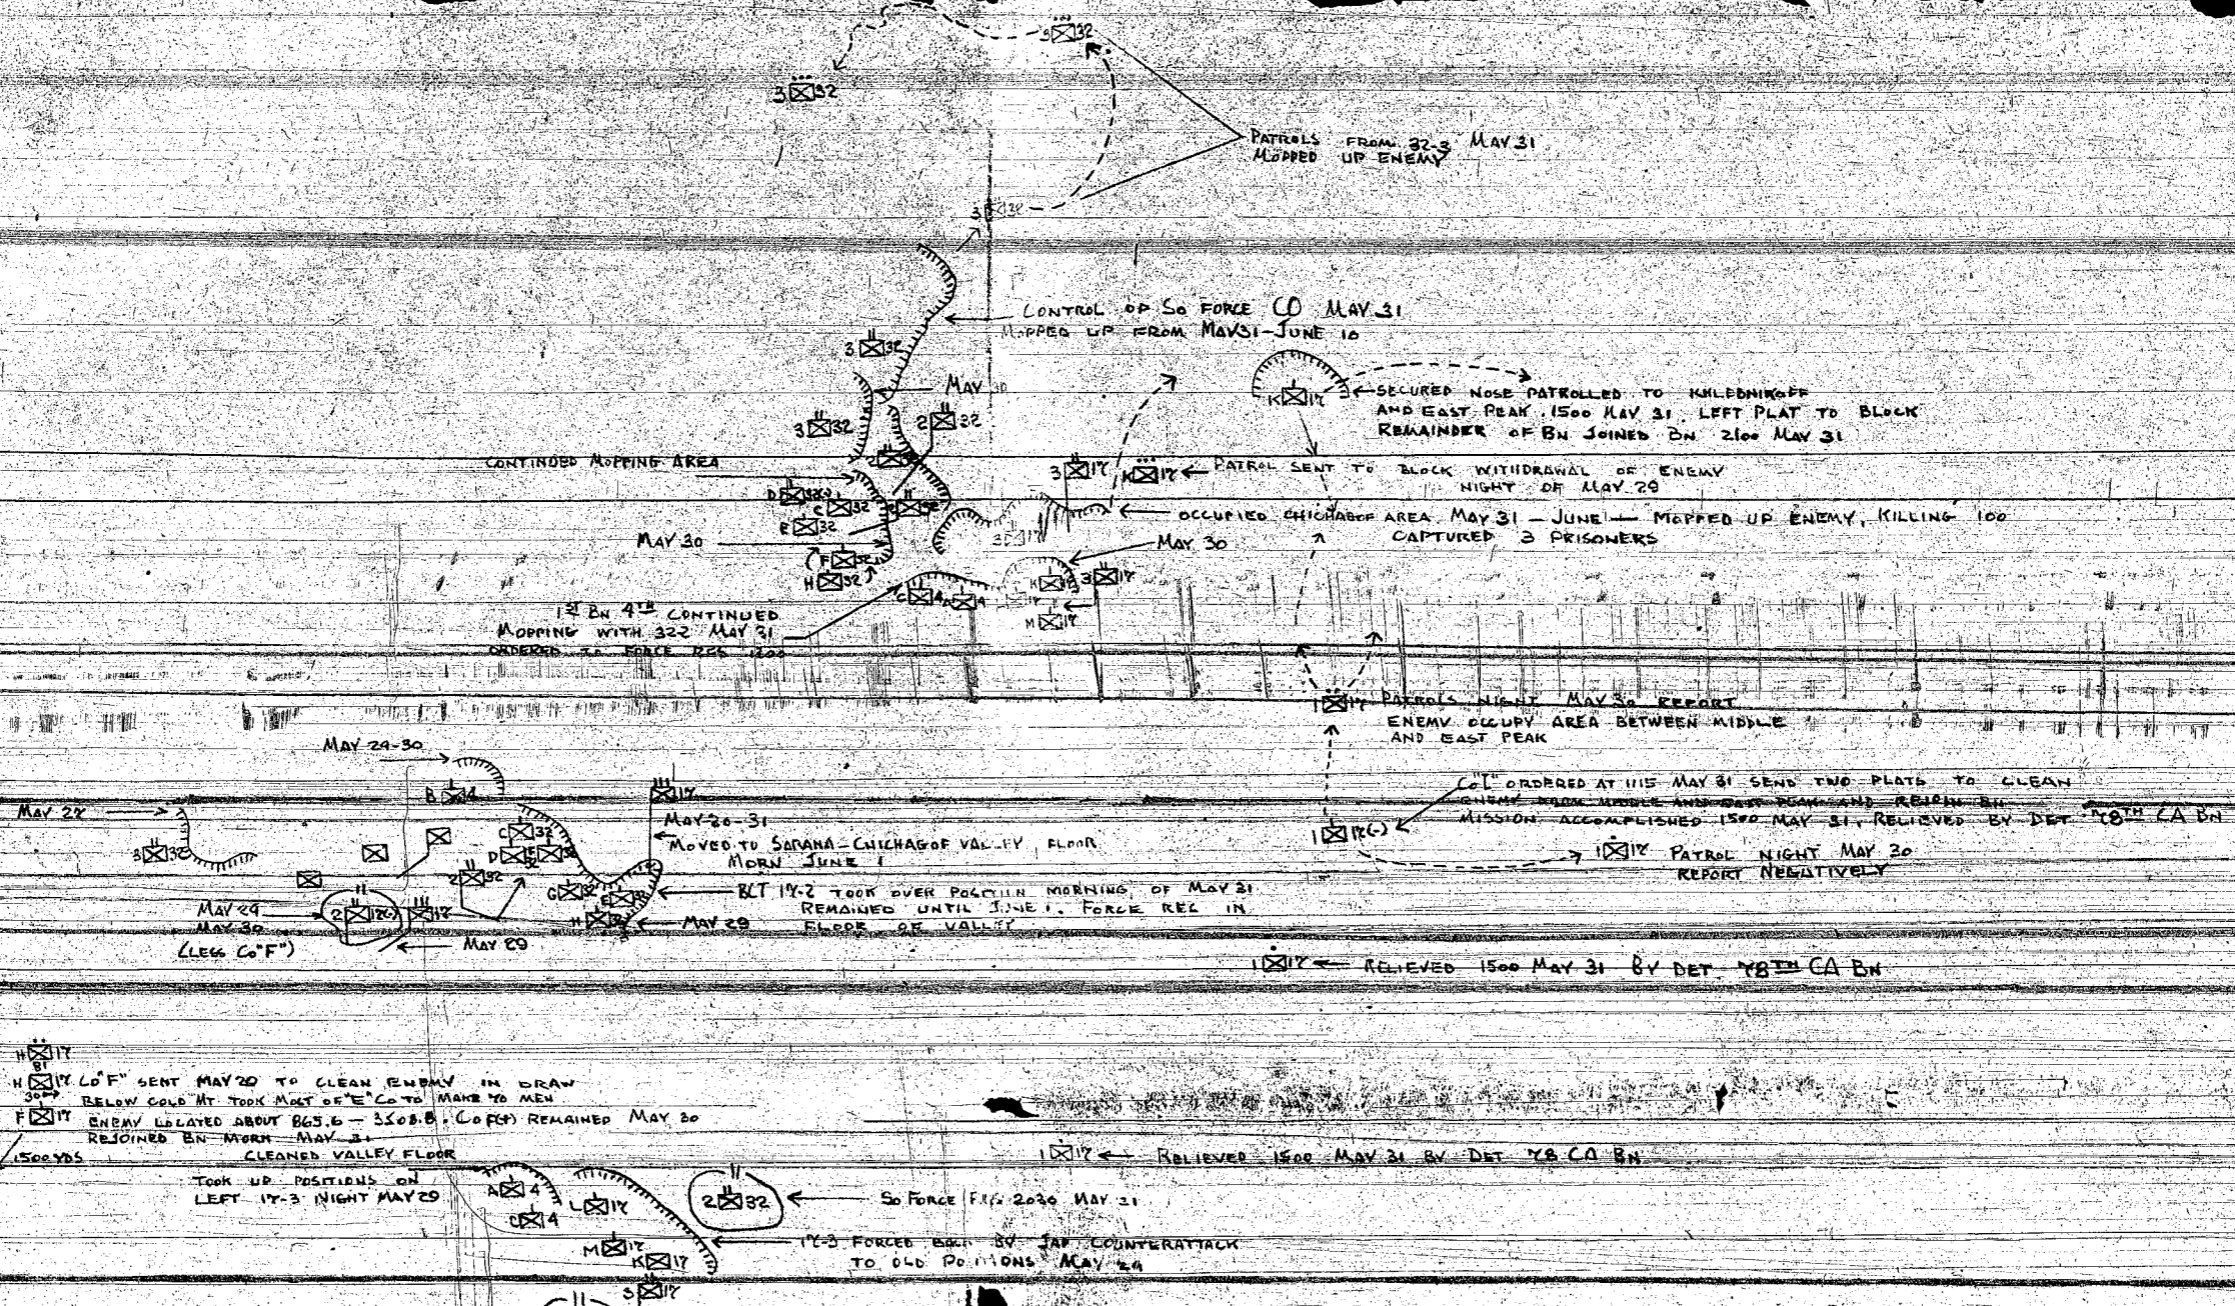 3 32
3 32
PATROLS FROM 32-3 MAY 31
MOPPED UP ENEMY
3 32
CONTROL OP SO FORCE CO MAY 31
MOPPED UP FROM MAY 31-JUNE 10
3 32
MAY 30
K 17
SECURED NOSE PATROLLED TO KHLEBNIKOFF
AND EAST PEAK. 1500 MAY 31. LEFT PLAT TO BLOCK
REMAINDER OF BN JOINED BN 2100 MAY 31
3 32
2 32
CONTINUED MOPPING AREA
3 17
K 17
PATROL SENT TO BLOCK WITHDRAWAL OF ENEMY
NIGHT OF MAY 29
D
C 32
E 32
OCCUPIED CHICHAGOF AREA MAY 31 - JUNE 1 - MOPPED UP ENEMY, KILLING 100
CAPTURED 3 PRISONERS
MAY 30
MAY 30
F 32
H 32
C 4
4
K
3 17
M 17
1ST BN 4TH CONTINUED
MOPPING WITH 322 MAY 31
ORDERED TO FORCE RES 1200
1 17
PATROLS NIGHT MAY 30 REPORT
ENEMY OCCUPY AREA BETWEEN MIDDLE
AND EAST PEAK
MAY 29-30
B 4
17
CO "I" ORDERED AT 1115 MAY 31 SEND TWO PLATS TO CLEAN
ENEMY FROM MIDDLE AND EAST PEAK AND REJOIN BN
MISSION ACCOMPLISHED 1500 MAY 31, RELIEVED BY DET 78TH CA BN
MAY 27
3 32
MAY 30-31
MOVED TO SARANA-CHICHAGOF VALLEY FLOOR
MORN JUNE 1
C 32
D
2 32
1 17(-)
1 17
PATROL NIGHT MAY 30
REPORT NEGATIVELY
G 32
H
BCT 17-2 TOOK OVER POSITION MORNING OF MAY 31
REMAINED UNTIL JUNE 1. FORCE RES IN
FLOOR OF VALLEY
MAY 29
MAY 30
(LESS CO "F")
2 17(-)
17
MAY 29
MAY 29
1 17
RELIEVED 1500 MAY 31 BY DET 78TH CA BN
H 17
81
H 17
30
F 17
CO "F" SENT MAY 29 TO CLEAN ENEMY IN DRAW
BELOW COLD MT TOOK MOST OF "E" CO TO MAKE 70 MEN
ENEMY LOCATED ABOUT 865.6 - 3508.8. CO F(+) REMAINED MAY 30
REJOINED BN MORN MAY 31
CLEANED VALLEY FLOOR
1500 YDS
1 17
RELIEVED 1500 MAY 31 BY DET 78 CA BN
TOOK UP POSITIONS ON
LEFT 17-3 NIGHT MAY 29
A 4
C 4
L 17
2 32
SO FORCE 2030 MAY 31
M 17
K 17
17-3 FORCED BACK BY JAP COUNTERATTACK
TO OLD POSITIONS MAY 29
3 17